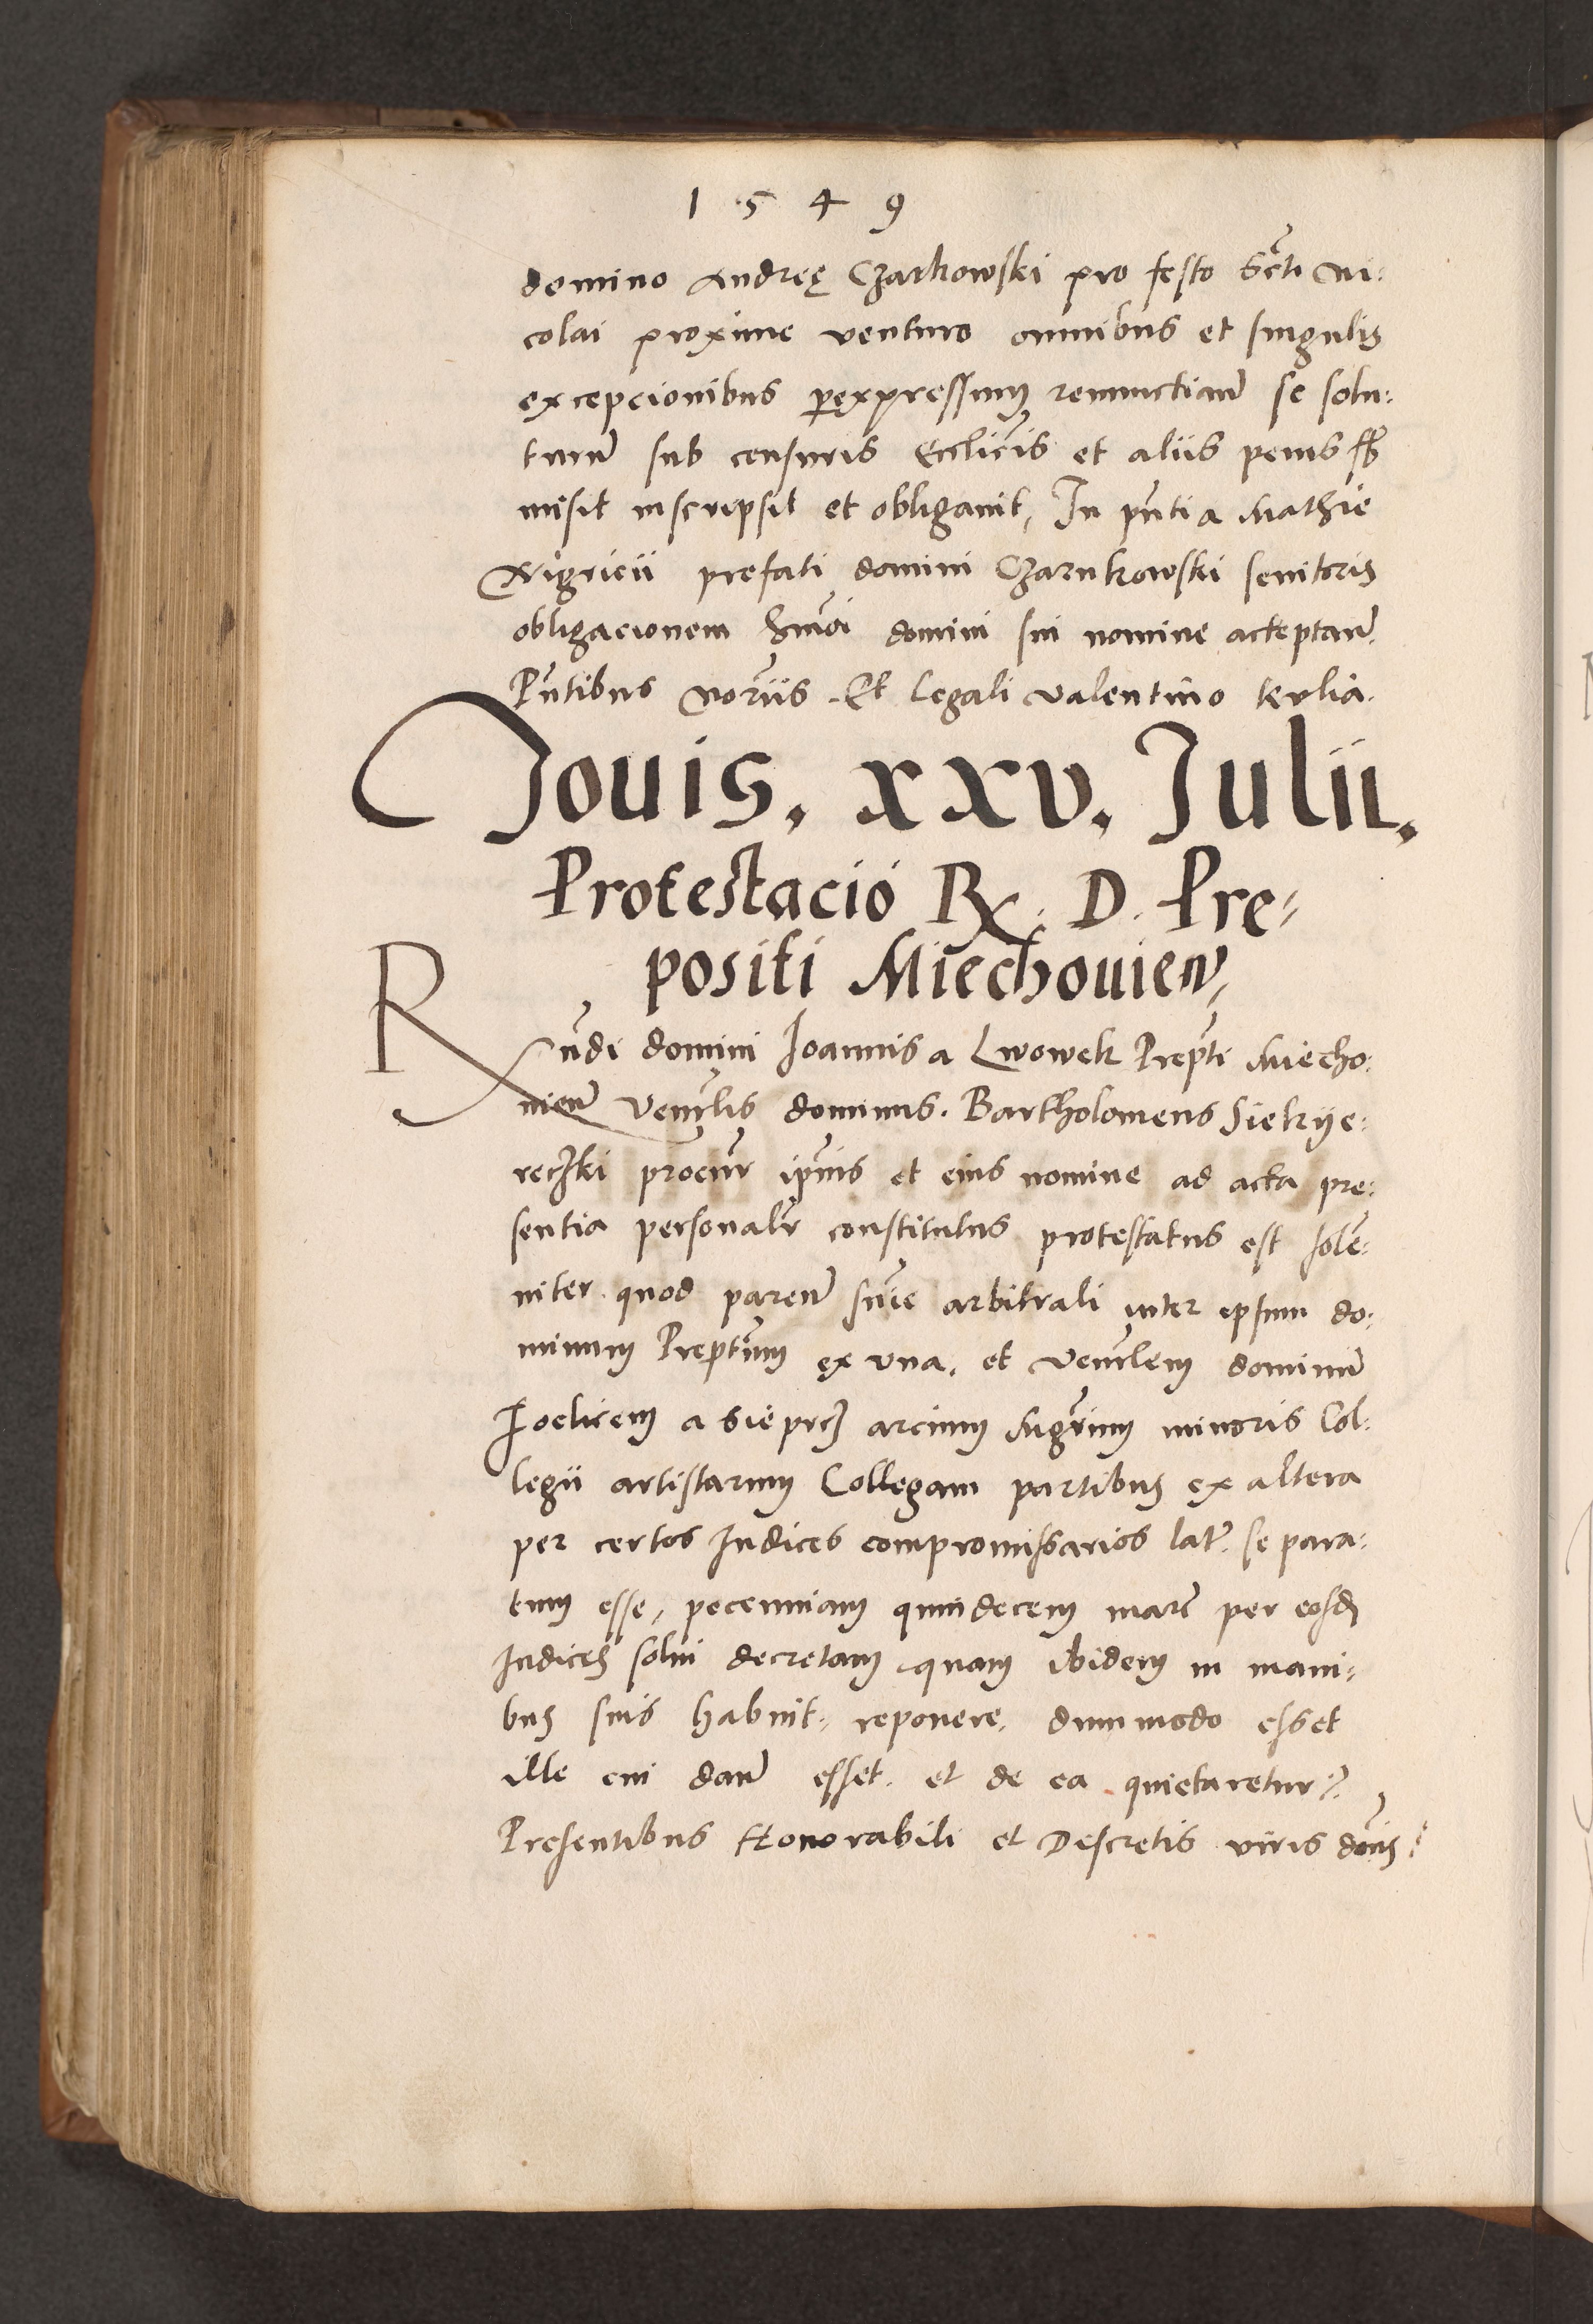 1549
domino Andreę Czarkowski pro festo Sċti Ni:
colai proxime venturo omnibus et singulis
excepcionibus perexpressum renunctiań se solu:
turum sub censuris Ecclicis et aliis penis sb
misit inscripsit et obligavit, In pn̄tia Mathie
Nigricii prefati domini Czarnkowski senitoris
obligacionem hm̄oi domini sui nomine acceptan̄.
Pn̄tibus Noriis. Et legali Valentino kulia.
Jouis. xxv. Julii.
Protestacio Rx. D. Pre=
positi Miechouien̄,
Rn̄di domini Joannis a Lwowek Prep̄ti Miecho:
uien̄ Ven̄rlis dominus. Bartholomeus Siekije:
reczki procur̄ ip̄ius et eius nomine ad acta pre:
sentia personalr̄ constitutus protestatus est solē:
niter quod paren̄ sn̄ie arbitrali inter ipsum do:
minum Prep̄tum ex una. et Ven̄rlem dominū
Foelicem a Sieprcz arcium Mgr̄um minoris Col:
legii artistarum Collegam partibus ex altera
per certos Judices compromissarios lat̄. se para:
tum esse, pecunniam quindecem marc̄ per eosd
Judices solui decretam quam ibidem in mani=
bus suis habuit= reponere. dummodo esset
ille cui dan̄ esset. et de ea quietaretur.
Presentibus Honorabili et Discretis viris dn̄is